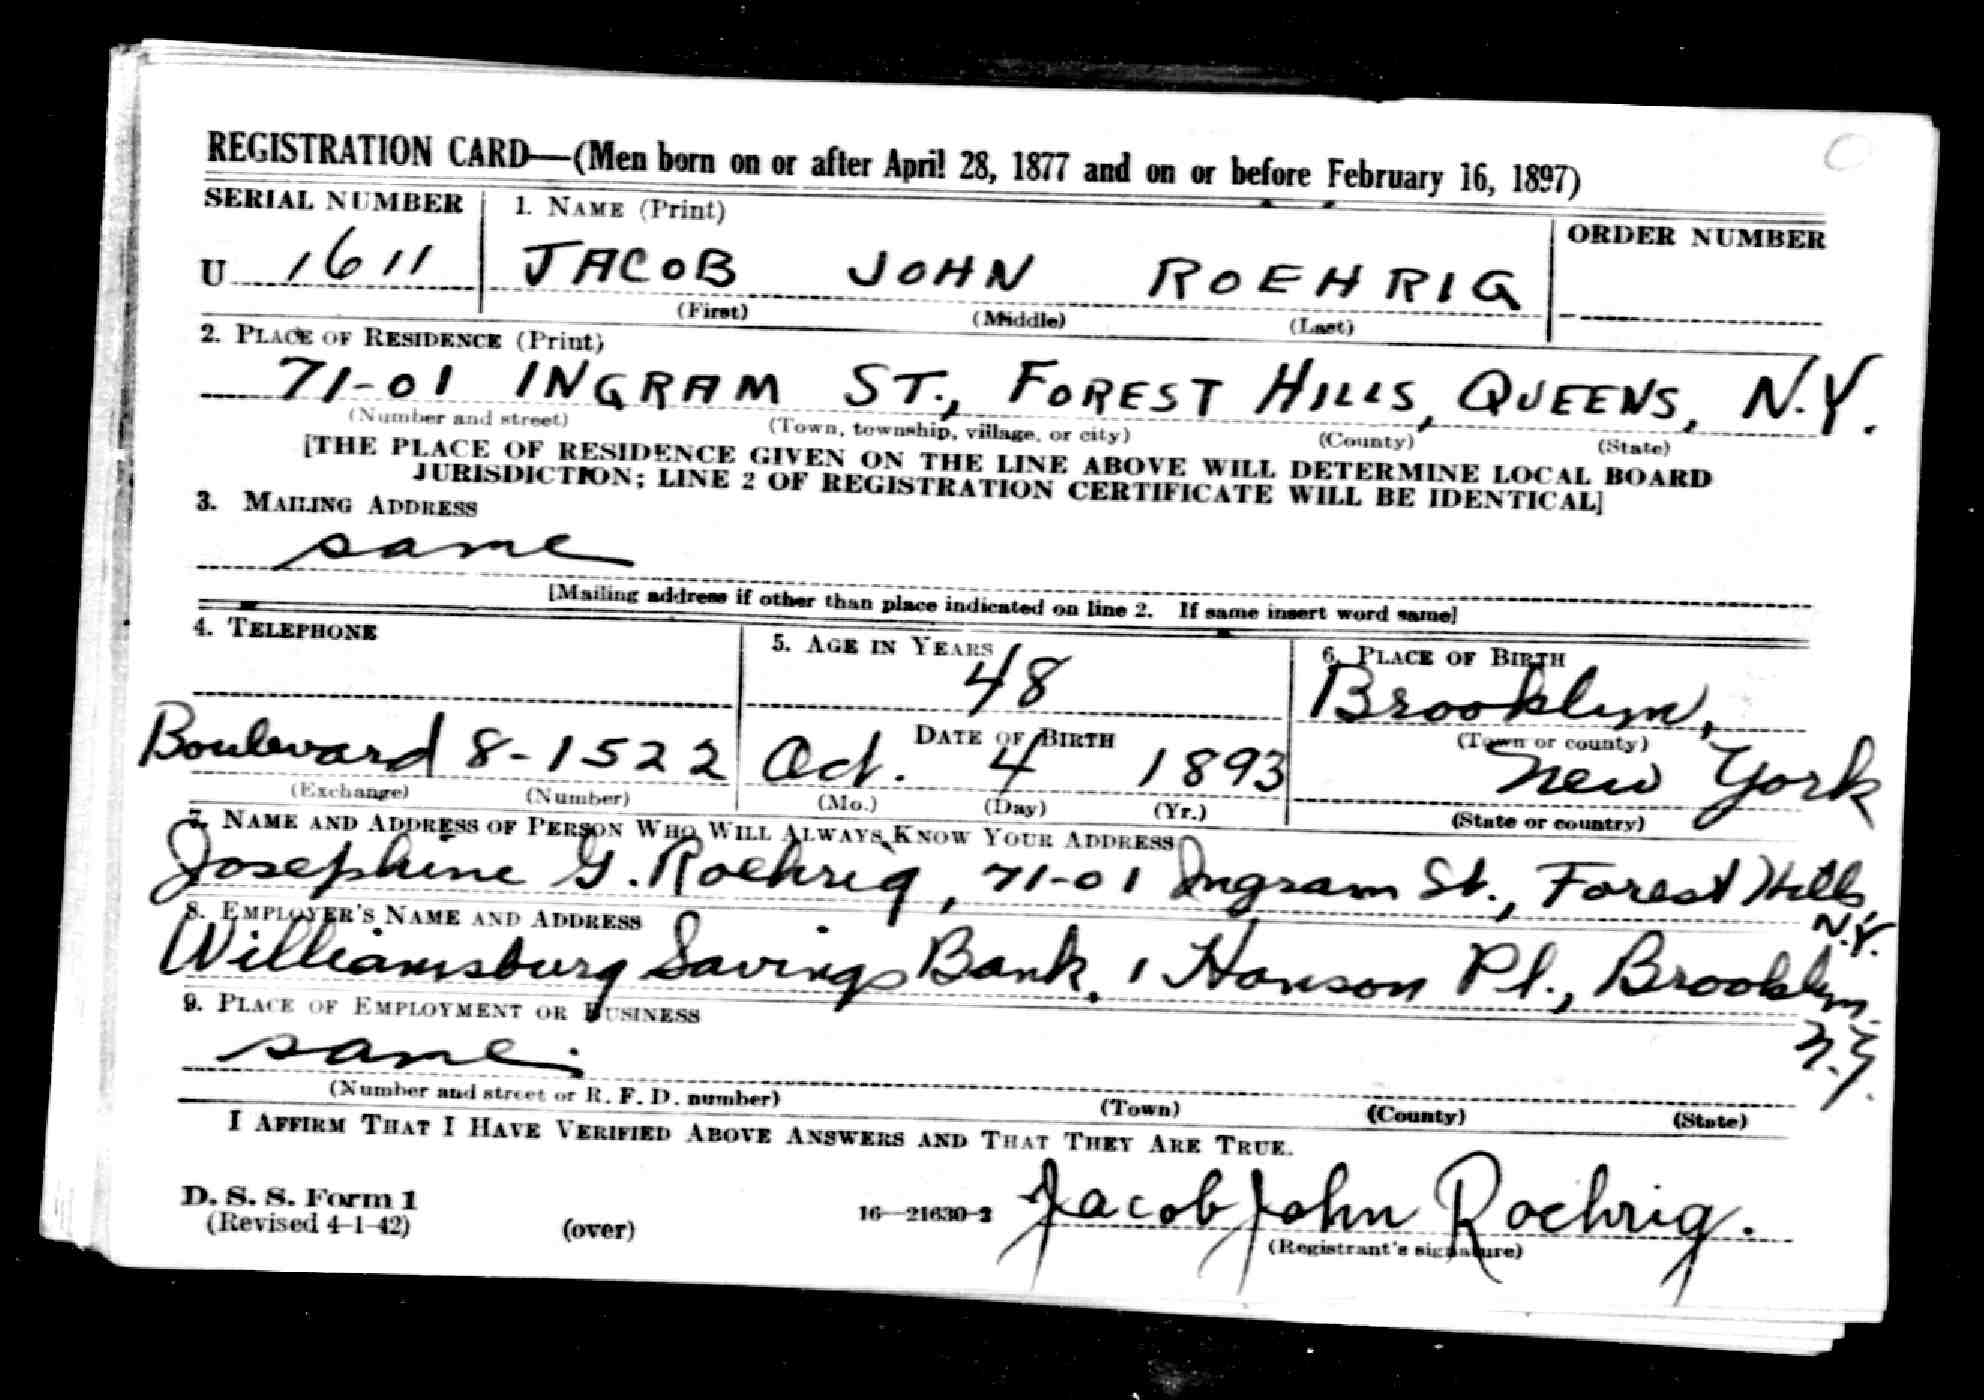 REGISTRATION CARD—(Men born on or after April 28, 1877 and on or before February 16, 1897)
SERIAL NUMBER
1. NAME (Print)
ORDER NUMBER
U 1611
JACOB JOHN ROEHRIG
(First) (Middle) (Last)
2. PLACE OF RESIDENCE (Print)
71-01 INGRAM ST., FOREST HILLS, QUEENS, N.Y.
(Number and street) (Town, township, village, or city) (County) (State)
[THE PLACE OF RESIDENCE GIVEN ON THE LINE ABOVE WILL DETERMINE LOCAL BOARD
JURISDICTION; LINE 2 OF REGISTRATION CERTIFICATE WILL BE IDENTICAL]
3. MAILING ADDRESS
same
[Mailing address if other than place indicated on line 2. If same insert word same]
4. TELEPHONE
5. AGE IN YEARS
6. PLACE OF BIRTH
48
Brooklyn,
DATE OF BIRTH
(Town or county)
Boulevard 8-1522
Oct. 4 1893
New York
(Exchange) (Number)
(Mo.) (Day) (Yr.)
(State or country)
7. NAME AND ADDRESS OF PERSON WHO WILL ALWAYS KNOW YOUR ADDRESS
Josephine G. Roehrig, 71-01 Ingram St., Forest Hills
N.Y.
8. EMPLOYER'S NAME AND ADDRESS
Williamsburg Savings Bank, 1 Hanson Pl., Brooklyn
N.Y.
9. PLACE OF EMPLOYMENT OR BUSINESS
same.
(Number and street or R. F. D. number) (Town) (County) (State)
I AFFIRM THAT I HAVE VERIFIED ABOVE ANSWERS AND THAT THEY ARE TRUE.
D. S. S. Form 1
(Revised 4-1-42)
(over)
16—21630-2
Jacob John Roehrig.
(Registrant's signature)